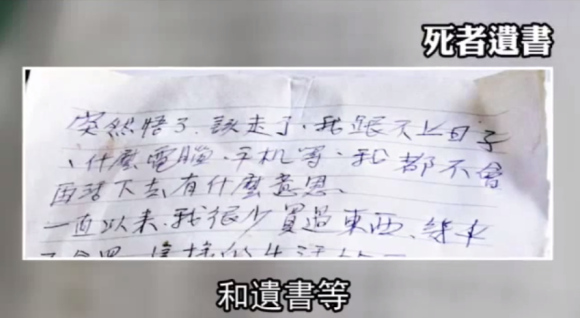 死者遺書
突然悟了.該走了.我跟不上日子
、什麼電腦、手机等、我都不會
活下去有什麼意思、
一直以来.我很少買過東西、
這樣的生活
和遺書等